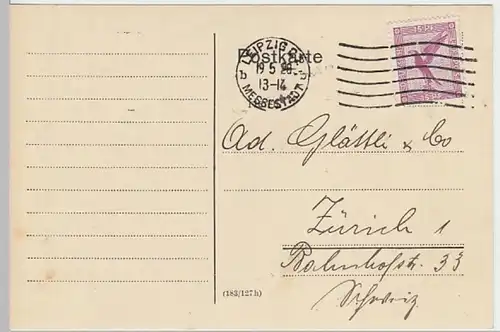 Postkarte
LEIPZIG
19 5 26
13-14
b b
MESSESTADT
Ad. Glättli & Co
Zürich 1
Bahnhofstr. 33
Schweiz
(183/127h)